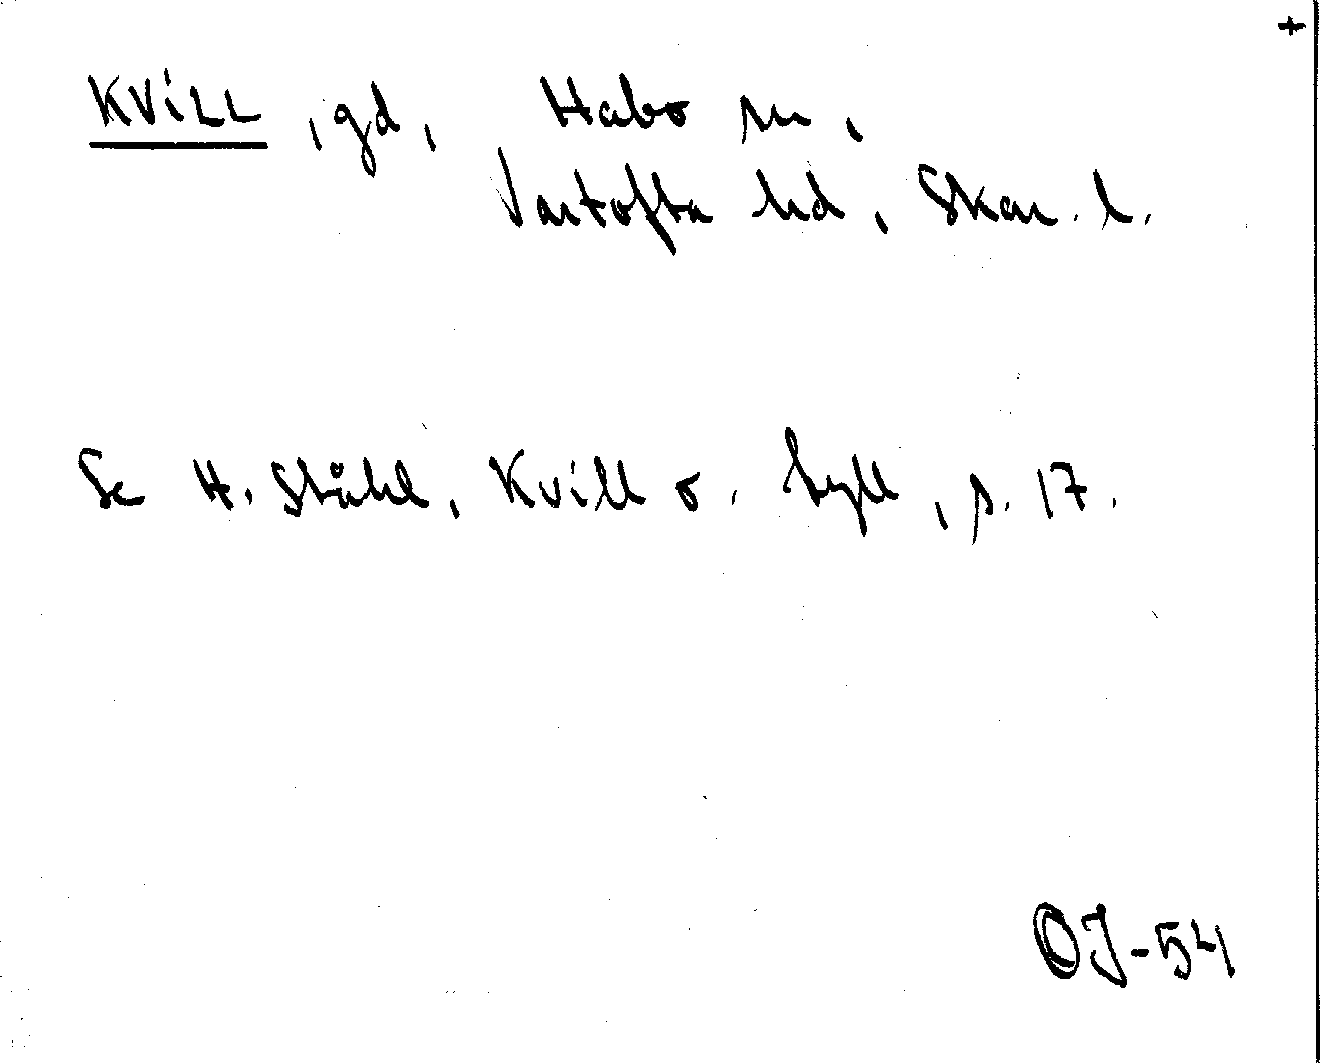 +
KVILL, gd, Habo sn,
Vartofta hd, Skar. l.
Se H. Ståhl, Kvill o. Tyll, s. 17.
OJ-54